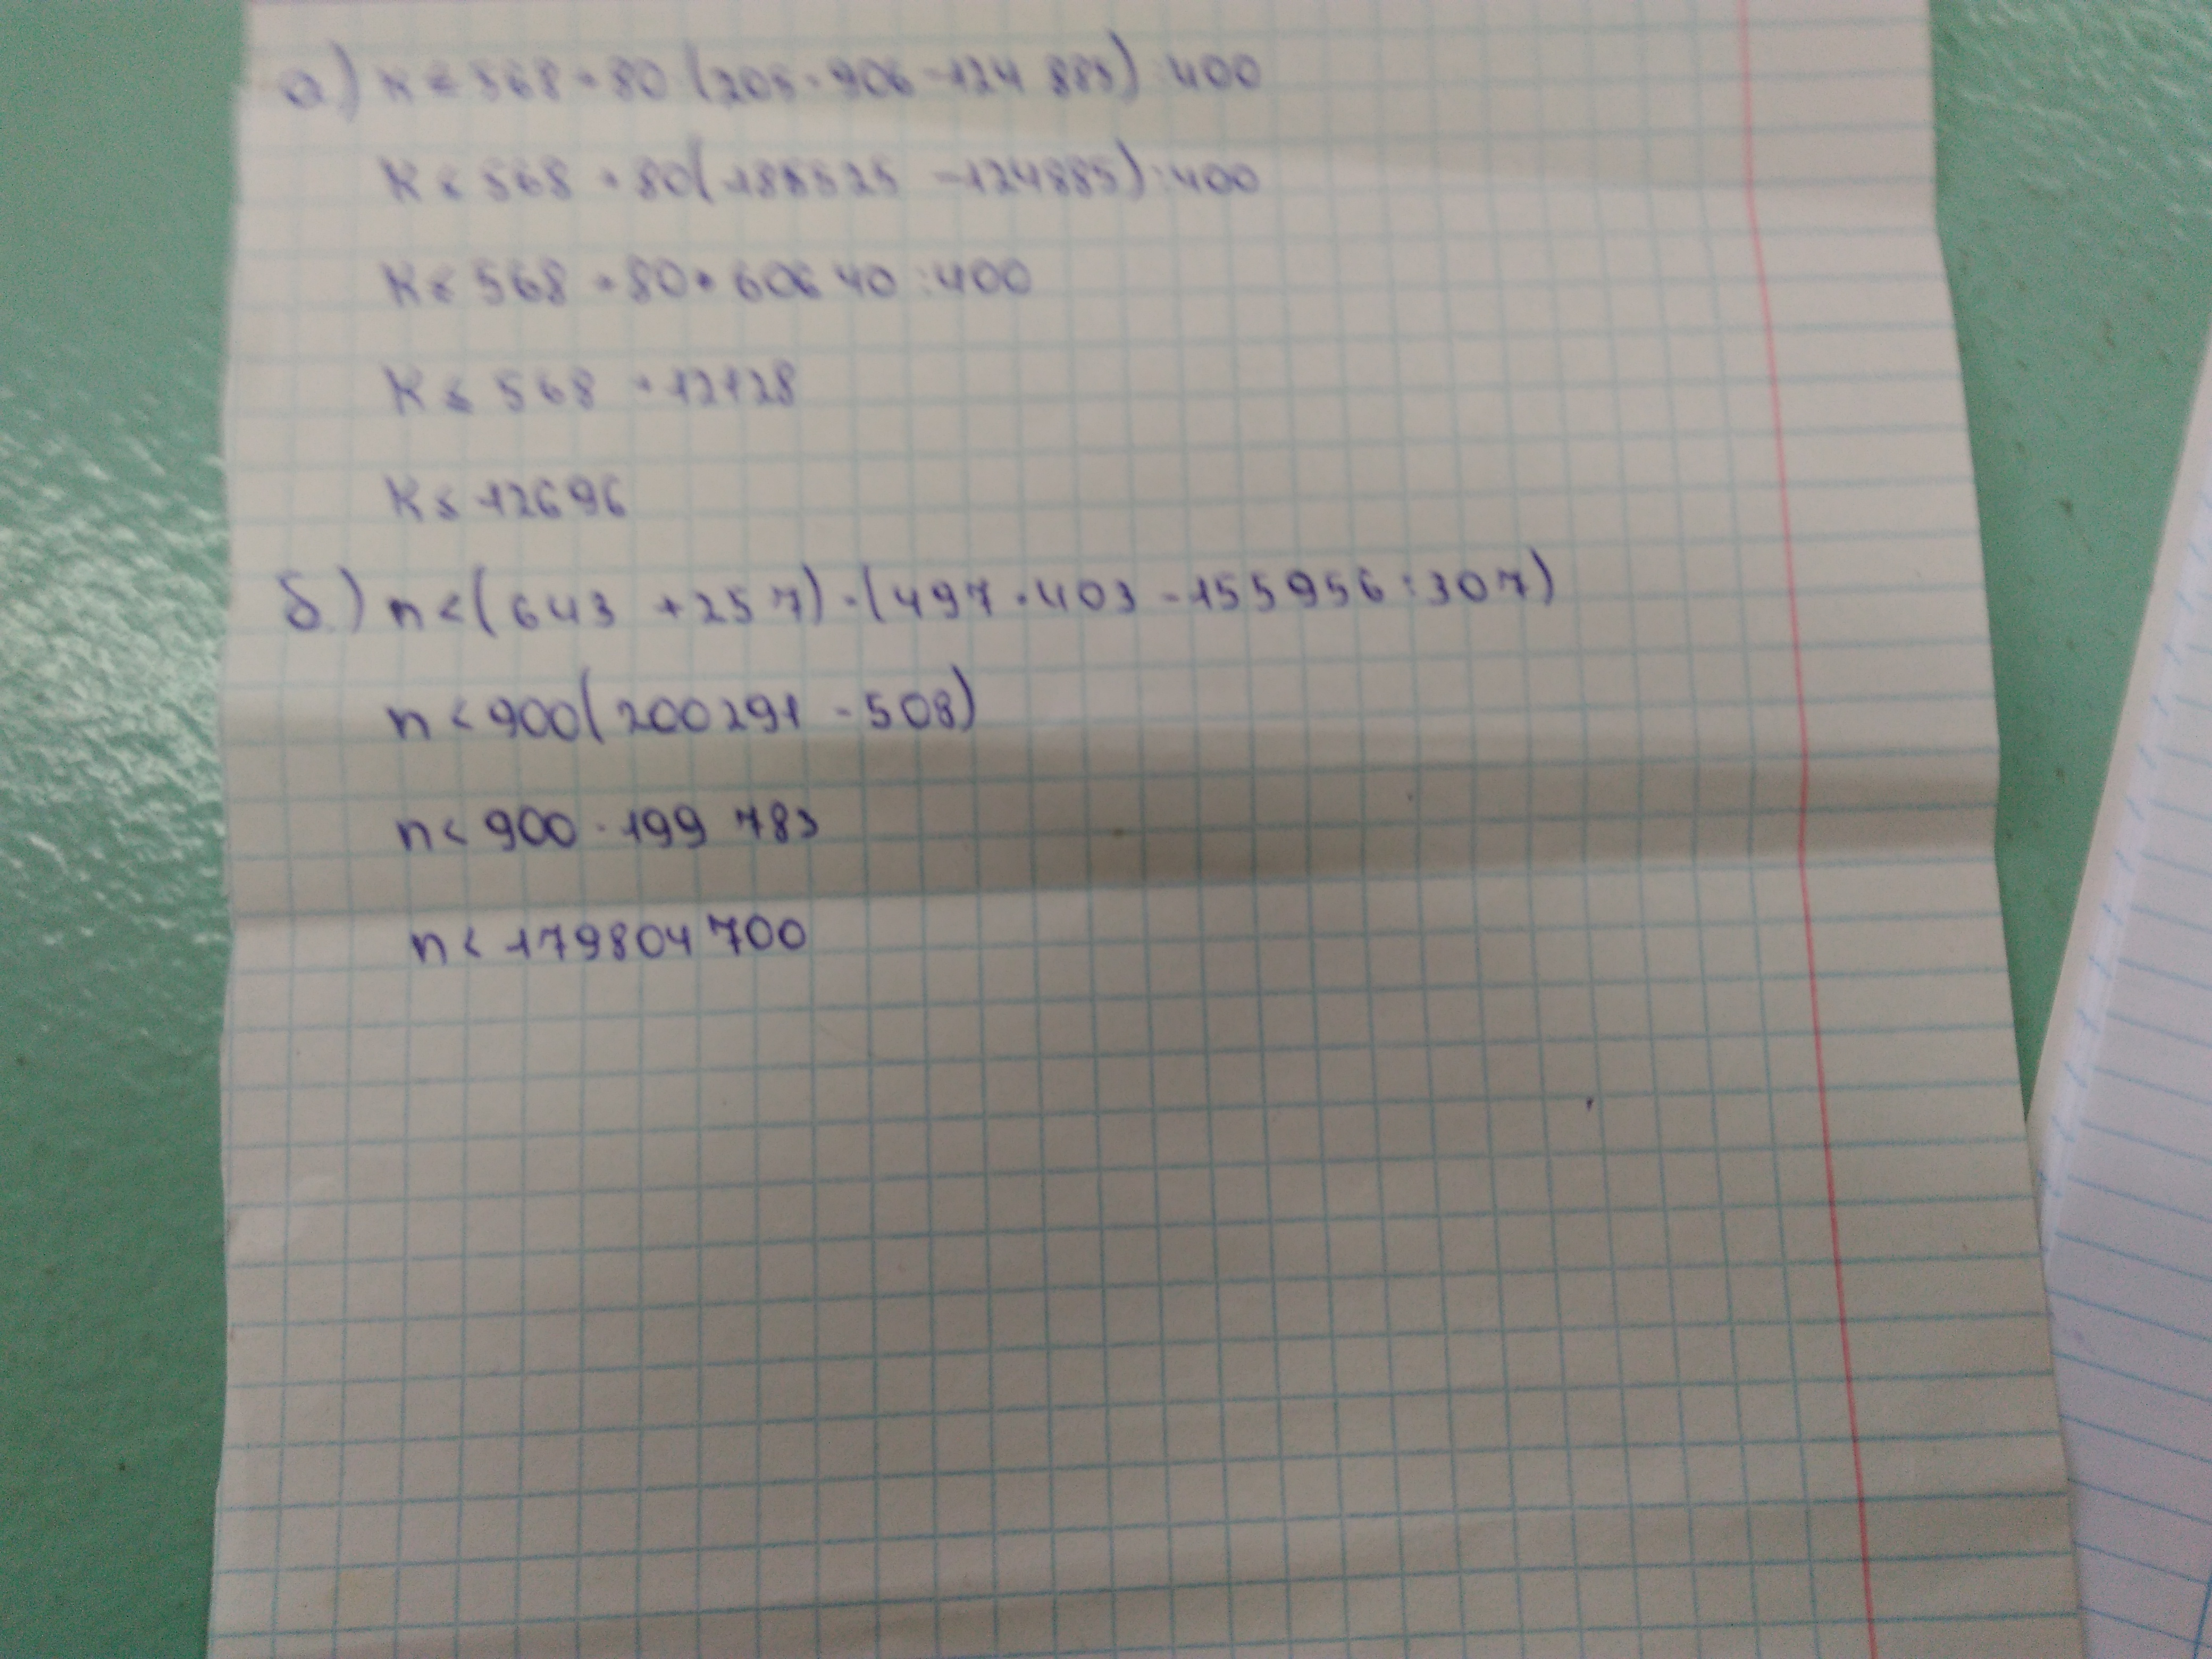 а) к ≤ 568 + 80 (205 · 906 - 124 885) : 400
К ≤ 568 + 80(185525 - 124885) : 400
К ≤ 568 + 80 · 60640 : 400
К ≤ 568 + 12128
К ≤ 12696
б) n < (643 + 257) · (497 · 403 - 155956 : 307)
n < 900(200291 - 508)
n < 900 · 199 783
n < 179804700